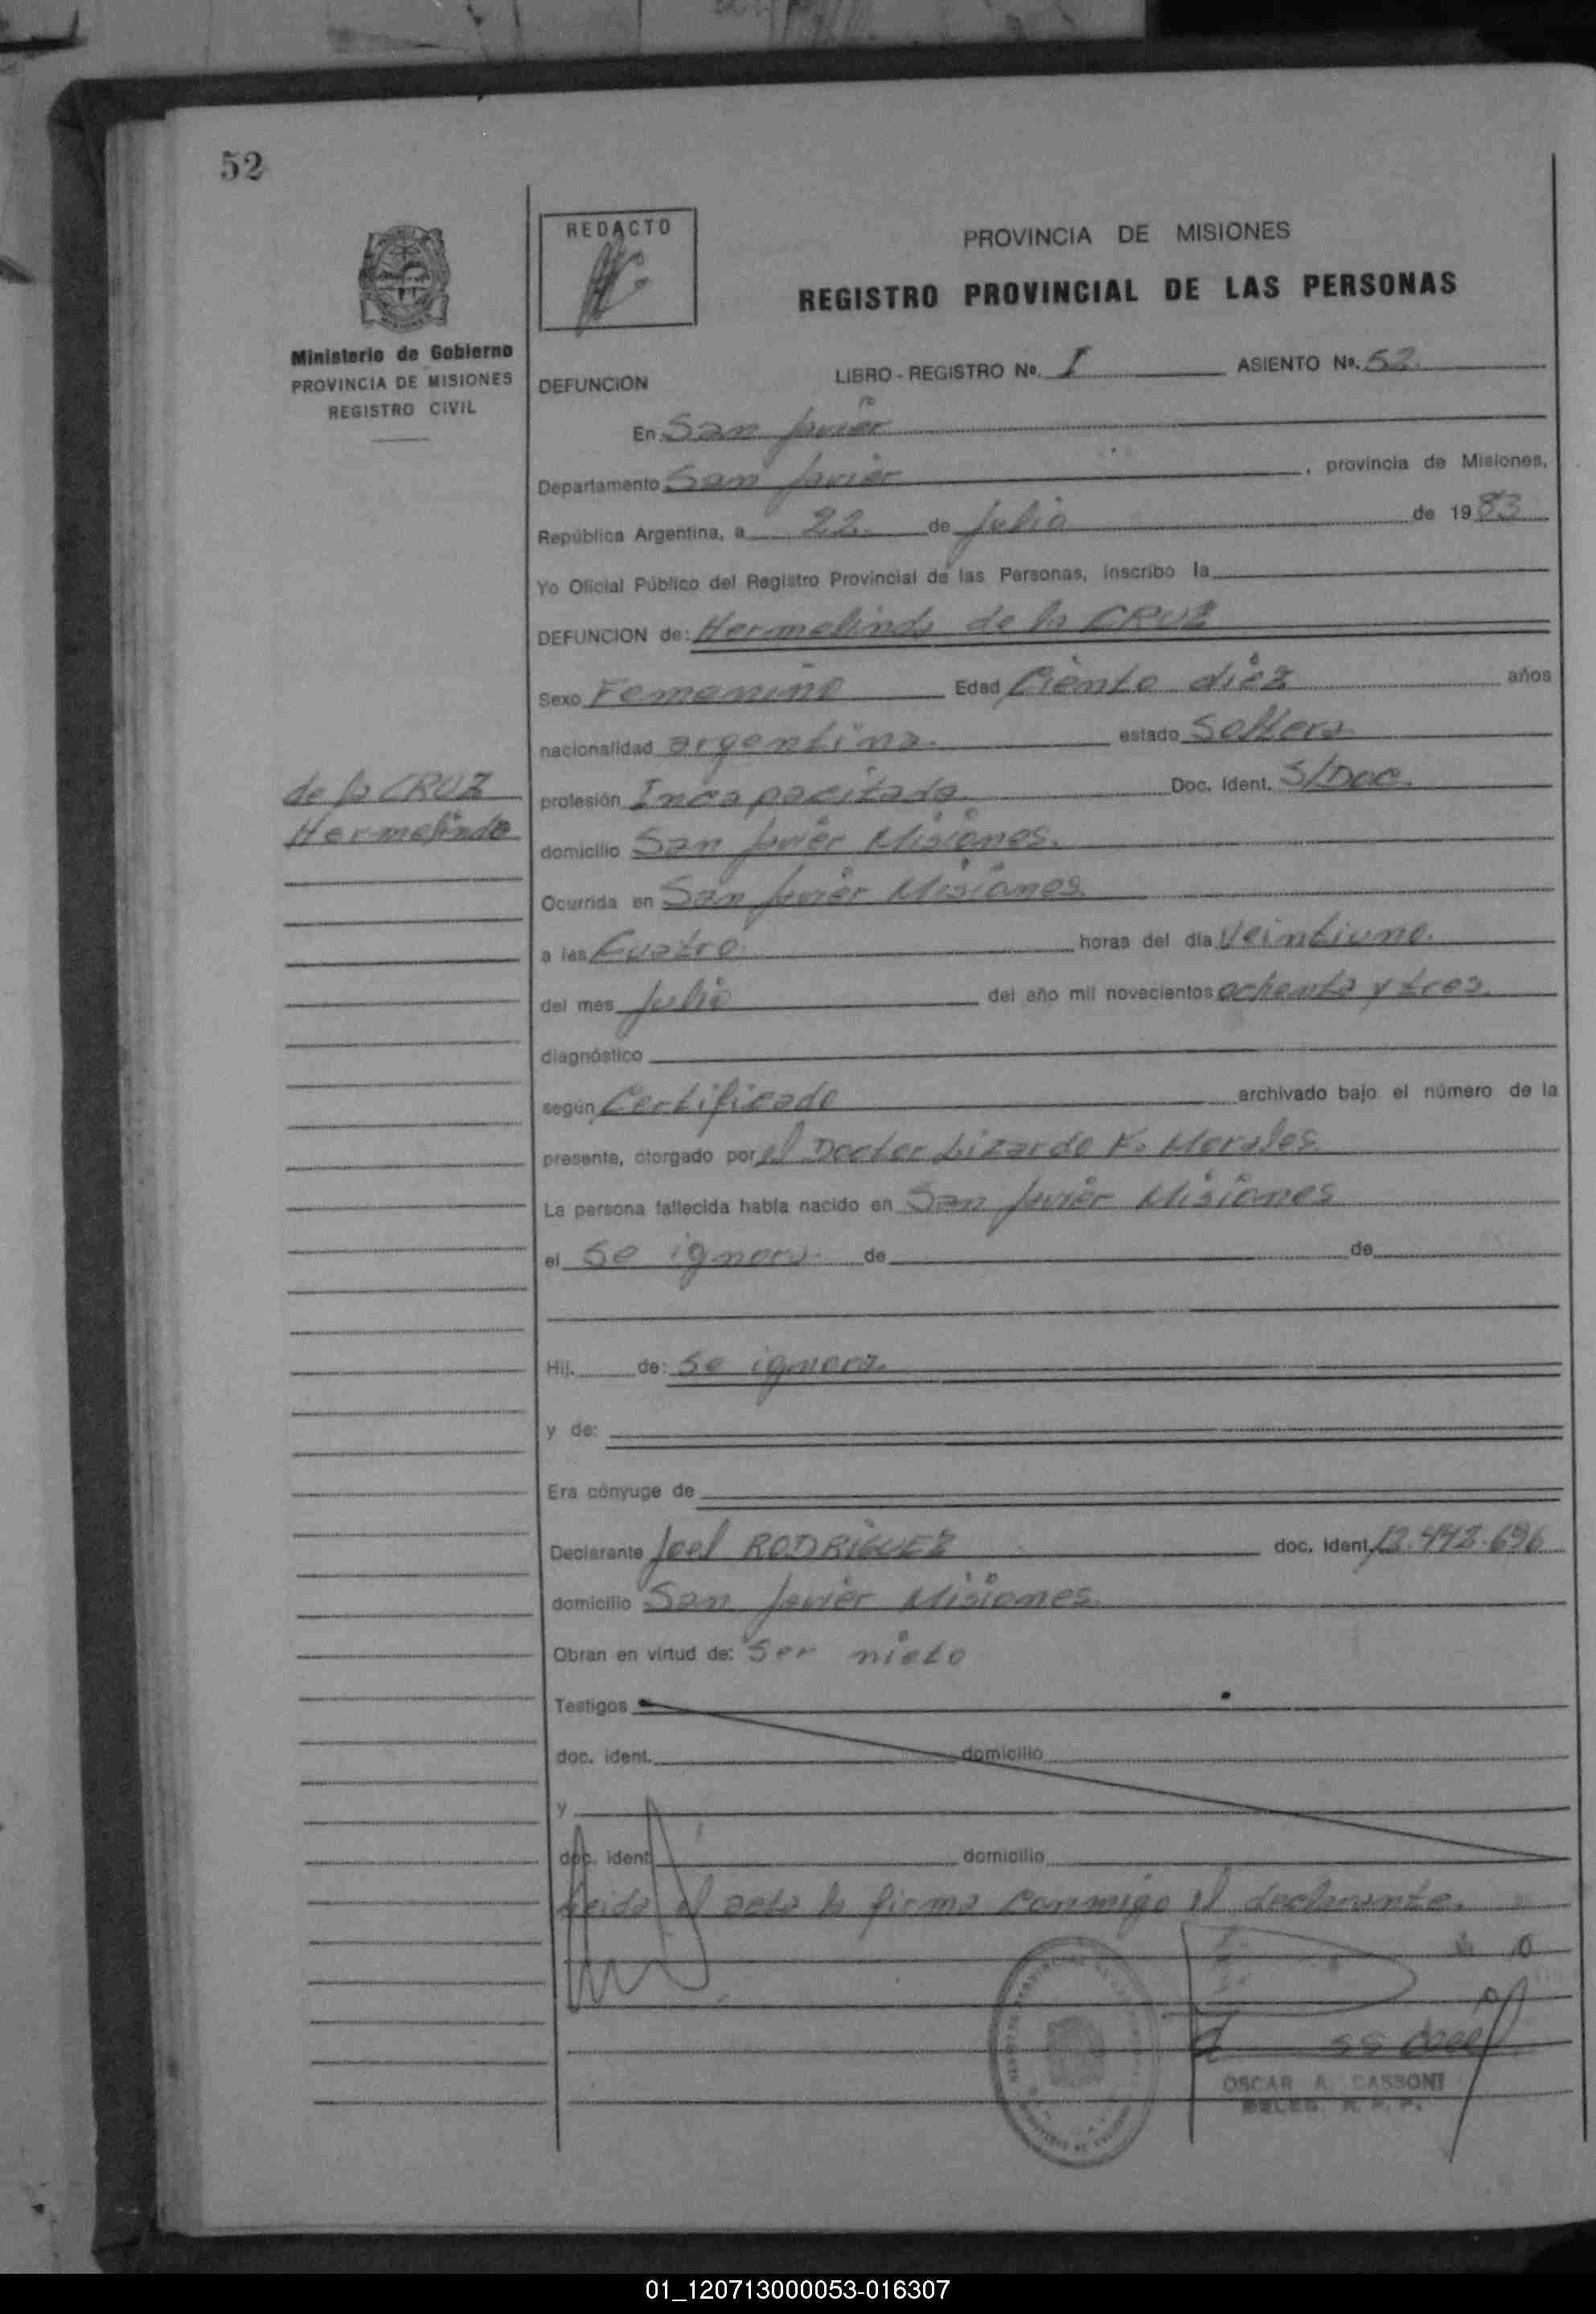 52
REDACTO
PROVINCIA DE MISIONES
REGISTRO PROVINCIAL DE LAS PERSONAS
Ministerio de Gobierno
PROVINCIA DE MISIONES
REGISTRO CIVIL
DEFUNCION LIBRO - REGISTRO No. I ASIENTO No. 52.
En San Javier
Departamento San Javier , provincia de Misiones,
República Argentina, a 22 de Julio de 1983
Yo Oficial Público del Registro Provincial de las Personas, inscribo la
DEFUNCION de: Hermelinda de la CRUZ
Sexo Femenino Edad Ciento diez años
nacionalidad argentina. estado Soltera
de la CRUZ
Hermelinda
profesión Incapacitada Doc. Ident. S/Doc.
domicilio San Javier Misiones.
Ocurrida en San Javier Misiones
a las Cuatro horas del día Veintiuno.
del mes Julio del año mil novecientos ochenta y tres
diagnóstico
según Certificado archivado bajo el número de la
presente, otorgado por el Doctor Lizardo F. Morales
La persona fallecida había nacido en San Javier Misiones
el se ignora de de
Hij. de: se ignora.
y de:
Era cónyuge de
Declarante Joel RODRIGUEZ doc. ident. 12.442.696
domicilio San Javier Misiones
Obran en virtud de: Ser nieto
Testigos
doc. ident. domicilio
y
doc. ident domicilio
Leida el acta la firma conmigo el declarante.
OSCAR A. CASSONI
DELEG. R. P. P.
01_120713000053-016307